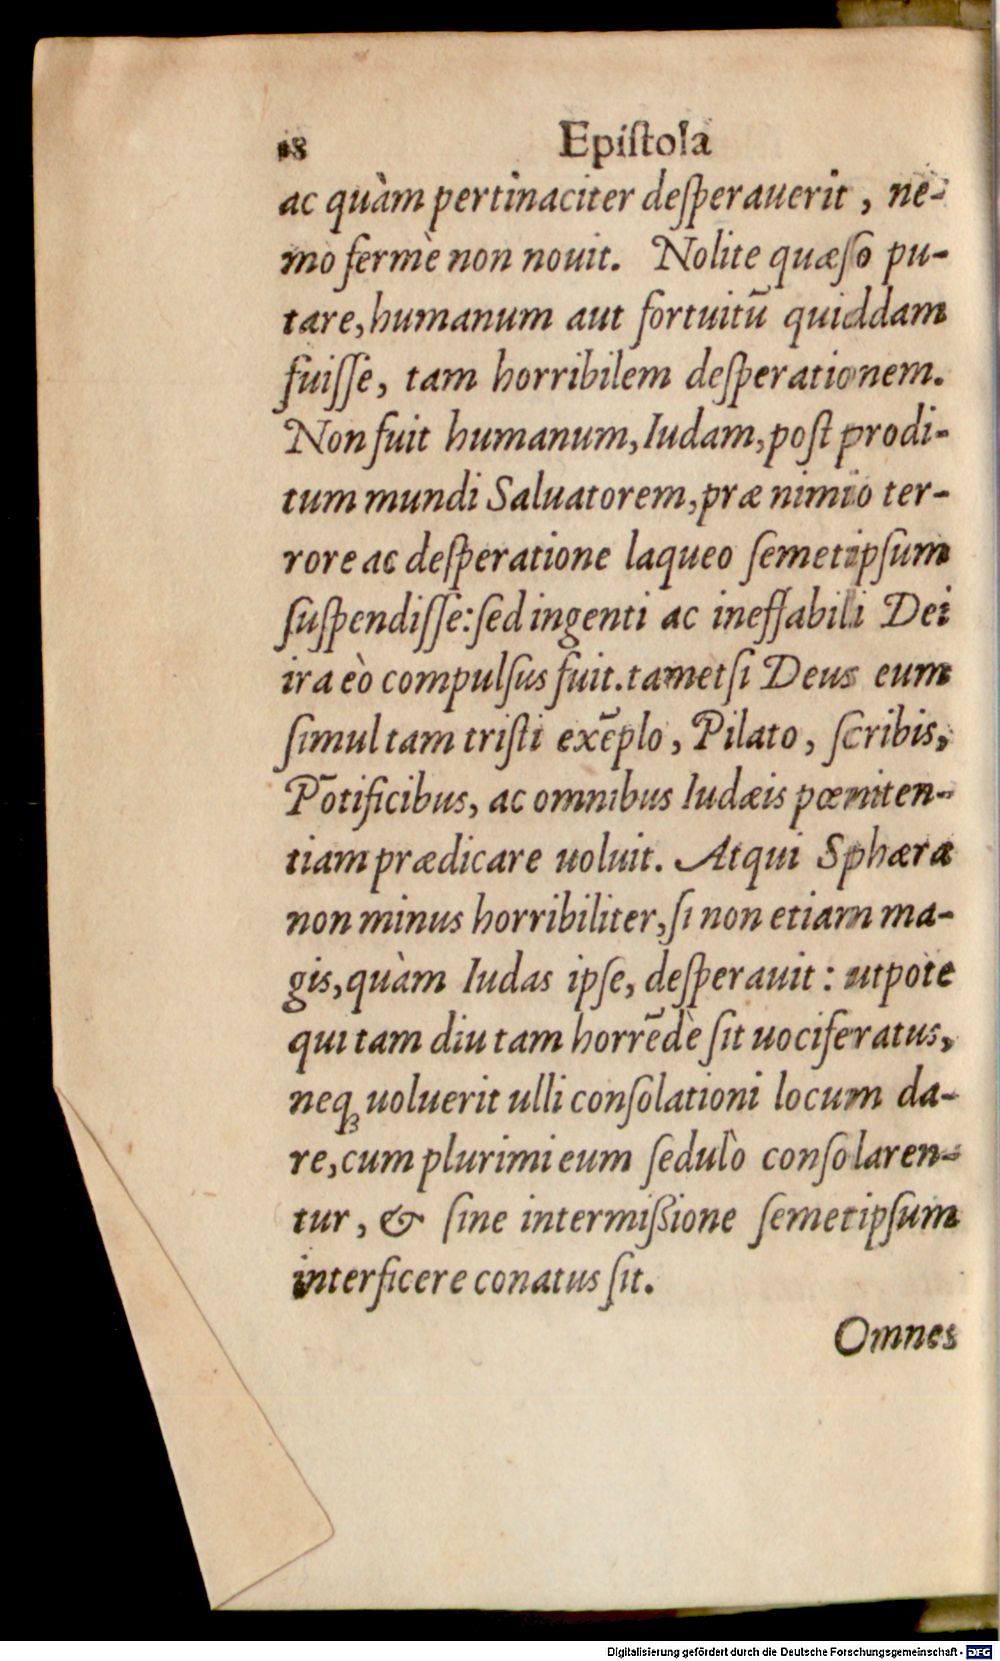 18 Epiſtola
ac quàm pertinaciter deſperauerit, ne-
mo fermè non nouit. Nolite quæſo pu-
tare, humanum aut fortuitū quiddam
fuiſſe, tam horribilem deſperationem.
Non fuit humanum, Iudam, poſt prodi-
tum mundi Saluatorem, præ nimio ter-
rore ac deſperatione laqueo ſemetipſum
ſuſpendiſſe: ſed ingenti ac ineffabili Dei
ira eò compulſus fuit. tametſi Deus eum
ſimul tam triſti exēplo, Pilato, ſcribis,
Pōtificibus, ac omnibus Iudæis pœniten-
tiam prædicare uoluit. Atqui Sphæra
non minus horribiliter, ſi non etiam ma-
gis, quàm Iudas ipſe, deſperauit: utpote
qui tam diu tam horrēdè ſit uociferatus,
neqꝫ uoluerit ulli conſolationi locum da-
re, cum plurimi eum ſedulò conſolaren-
tur, & ſine intermißione ſemetipſum
interficere conatus ſit.
Omnes
Digitalisierung gefördert durch die Deutsche Forschungsgemeinschaft - DFG